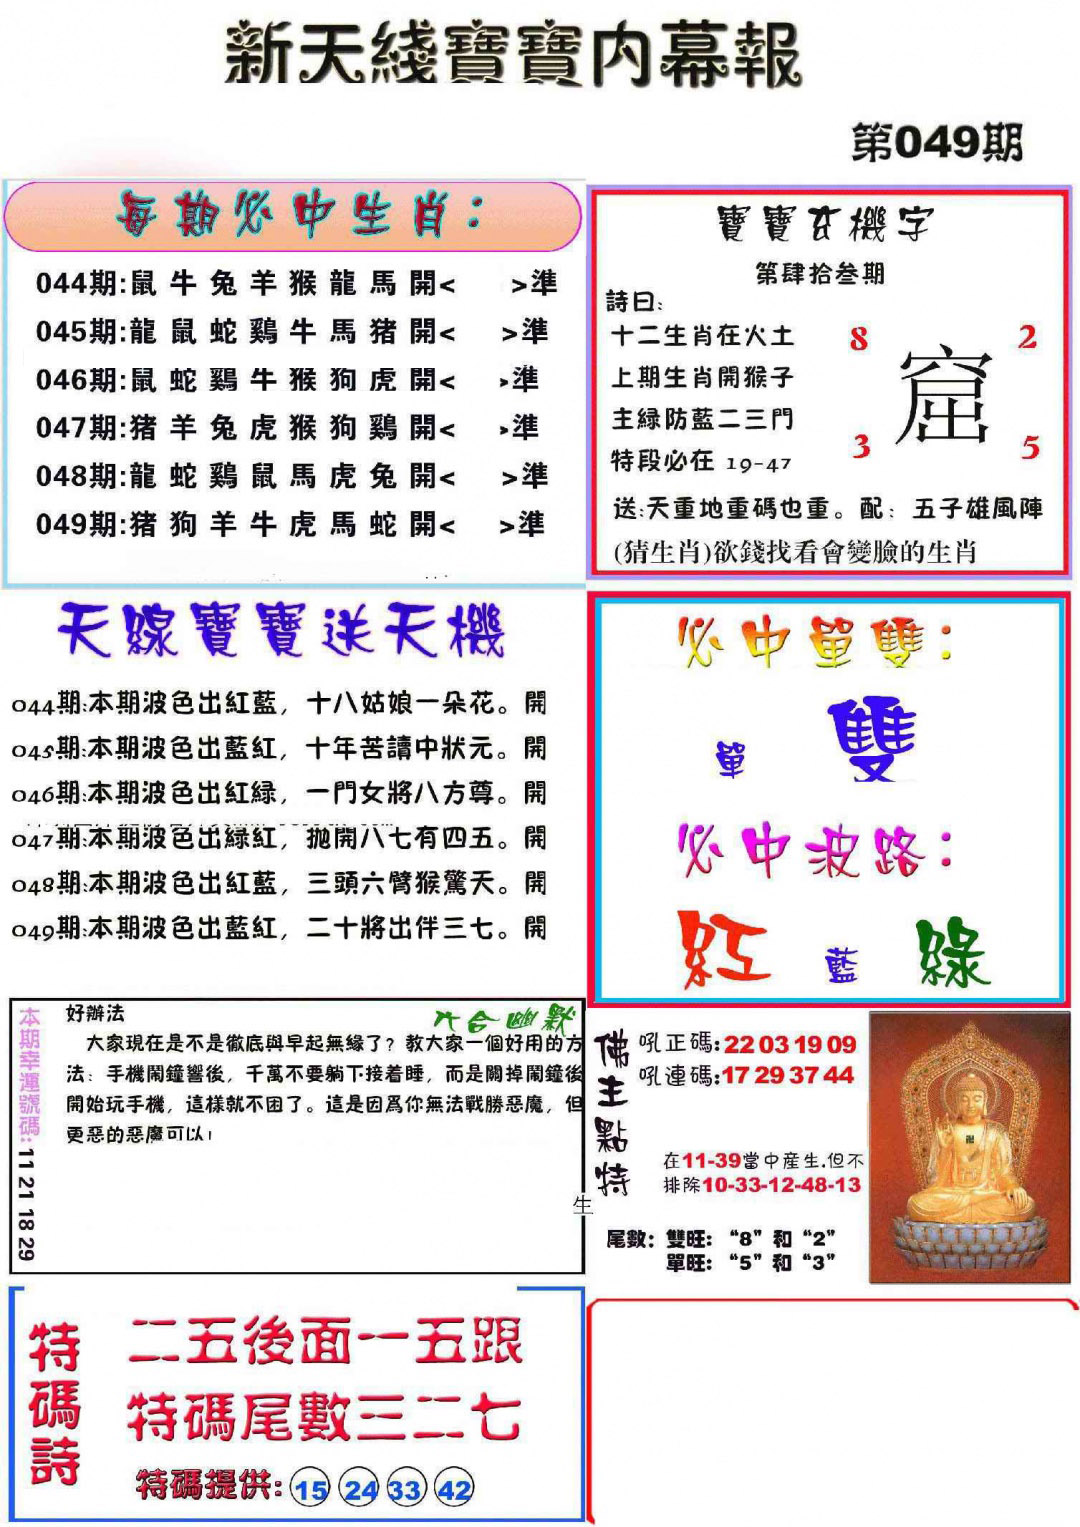 新天綫寶寶内幕報
第049期
每期必中生肖:
044期:鼠牛兔羊猴龍馬開< >準
045期:龍鼠蛇鷄牛馬猪開< >準
046期:鼠蛇鷄牛猴狗虎開< >準
047期:猪羊兔虎猴狗鷄開< >準
048期:龍蛇鷄鼠馬虎兔開< >準
049期:猪狗羊牛虎馬蛇開< >準
寶寶玄機字
第肆拾叁期
詩曰:
十二生肖在火土
上期生肖開猴子
主緑防藍二三門
特段必在 19-47
8 2
窟
3 5
送:天重地重碼也重。配: 五子雄風陣
(猜生肖)欲錢找看會變臉的生肖
天線寶寶送天機
044期:本期波色出紅藍，十八姑娘一朵花。開
045期:本期波色出藍紅，十年苦讀中狀元。開
046期:本期波色出紅緑，一門女將八方尊。開
047期:本期波色出緑紅，抛開八七有四五。開
048期:本期波色出紅藍，三頭六臂猴驚天。開
049期:本期波色出藍紅，二十將出伴三七。開
必中單雙:
單 雙
必中波路:
紅 藍 綠
本期幸運號碼:11 21 18 29
六合幽默
好辦法
大家現在是不是徹底與早起無緣了？教大家一個好用的方
法：手機鬧鐘響後，千萬不要躺下接着睡，而是關掉鬧鐘後
開始玩手機，這樣就不困了。這是因爲你無法戰勝惡魔，但
更惡的惡魔可以!
生
佛主點特
吼正碼:22 03 19 09
吼連碼:17 29 37 44
在11-39當中産生.但不
排除10-33-12-48-13
尾數：雙旺：“8”和“2”
單旺：“5”和“3”
特碼詩
二五後面一五跟
特碼尾數三二七
特碼提供: 15 24 33 42